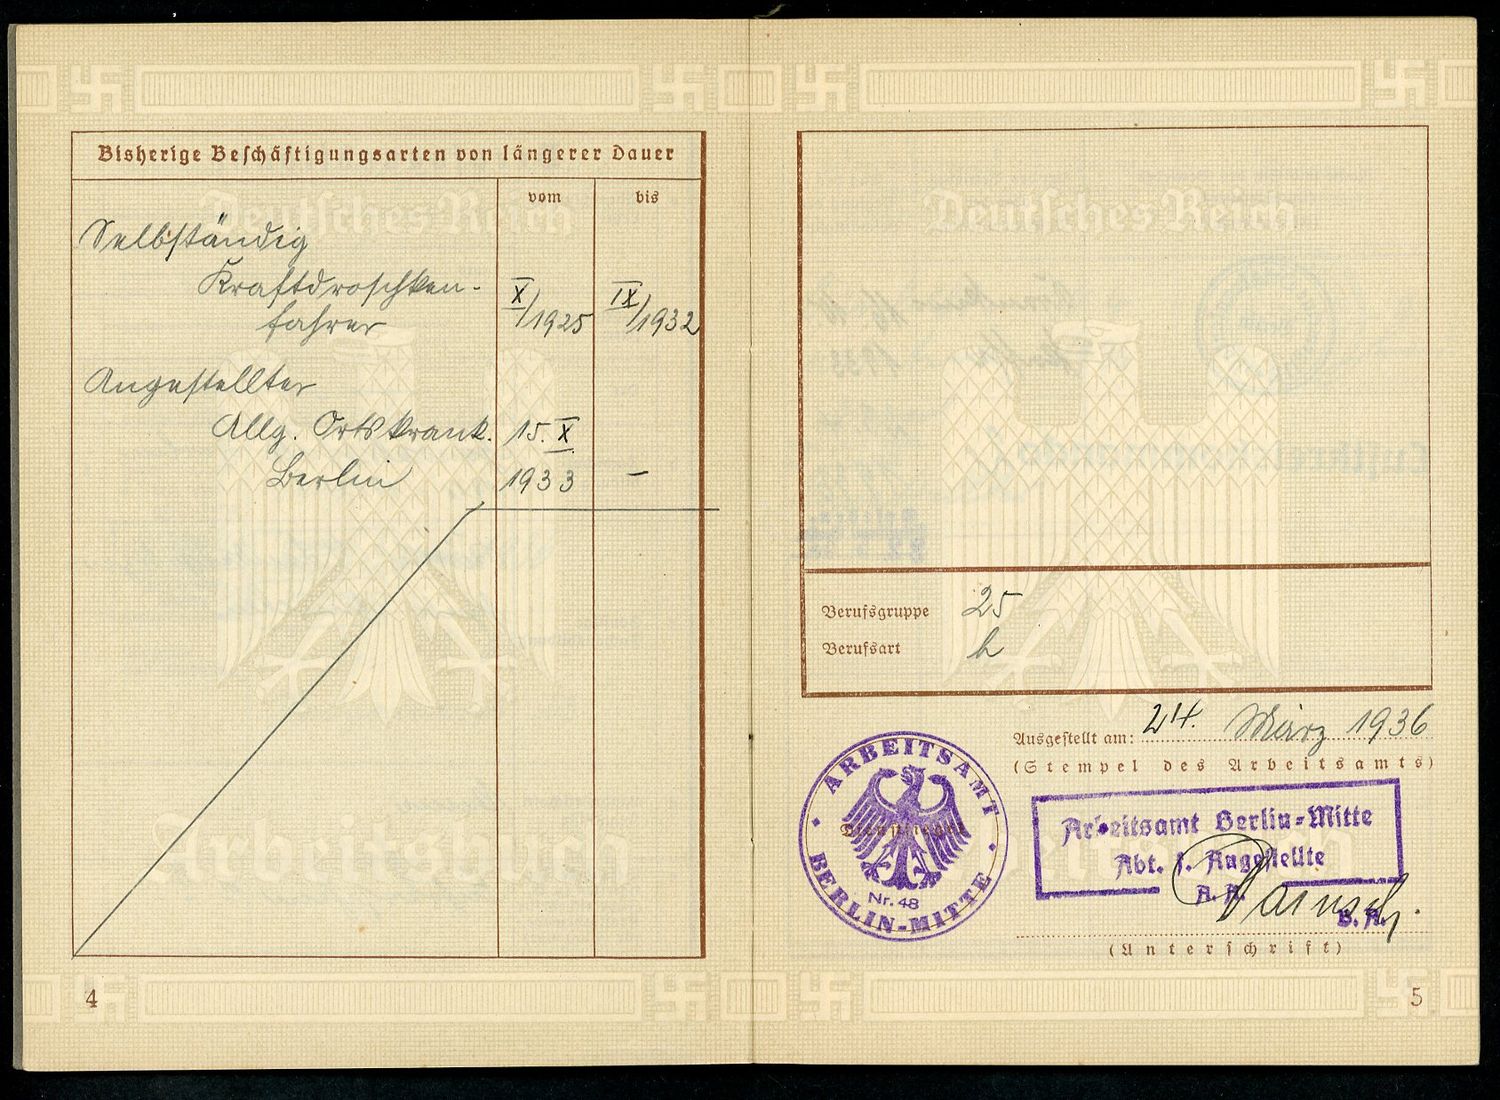 Bisherige Beschäftigungsarten von längerer Dauer
vom
bis
Selbständig
Kraftdroschken-
fahrer
X/1925
IX/1932
Angestellter
Allg. Ortskrank.
15. X
Berlin
1933
–
4
Deutsches Reich
Arbeitsbuch
Deutsches Reich
Berufsgruppe 25
Berufsart h
Ausgestellt am: 24. März 1936
(Stempel des Arbeitsamts)
ARBEITSAMT
BERLIN-MITTE
Nr. 48
Arbeitsamt Berlin-Mitte
Abt. f. Angestellte
(Unterschrift)
5